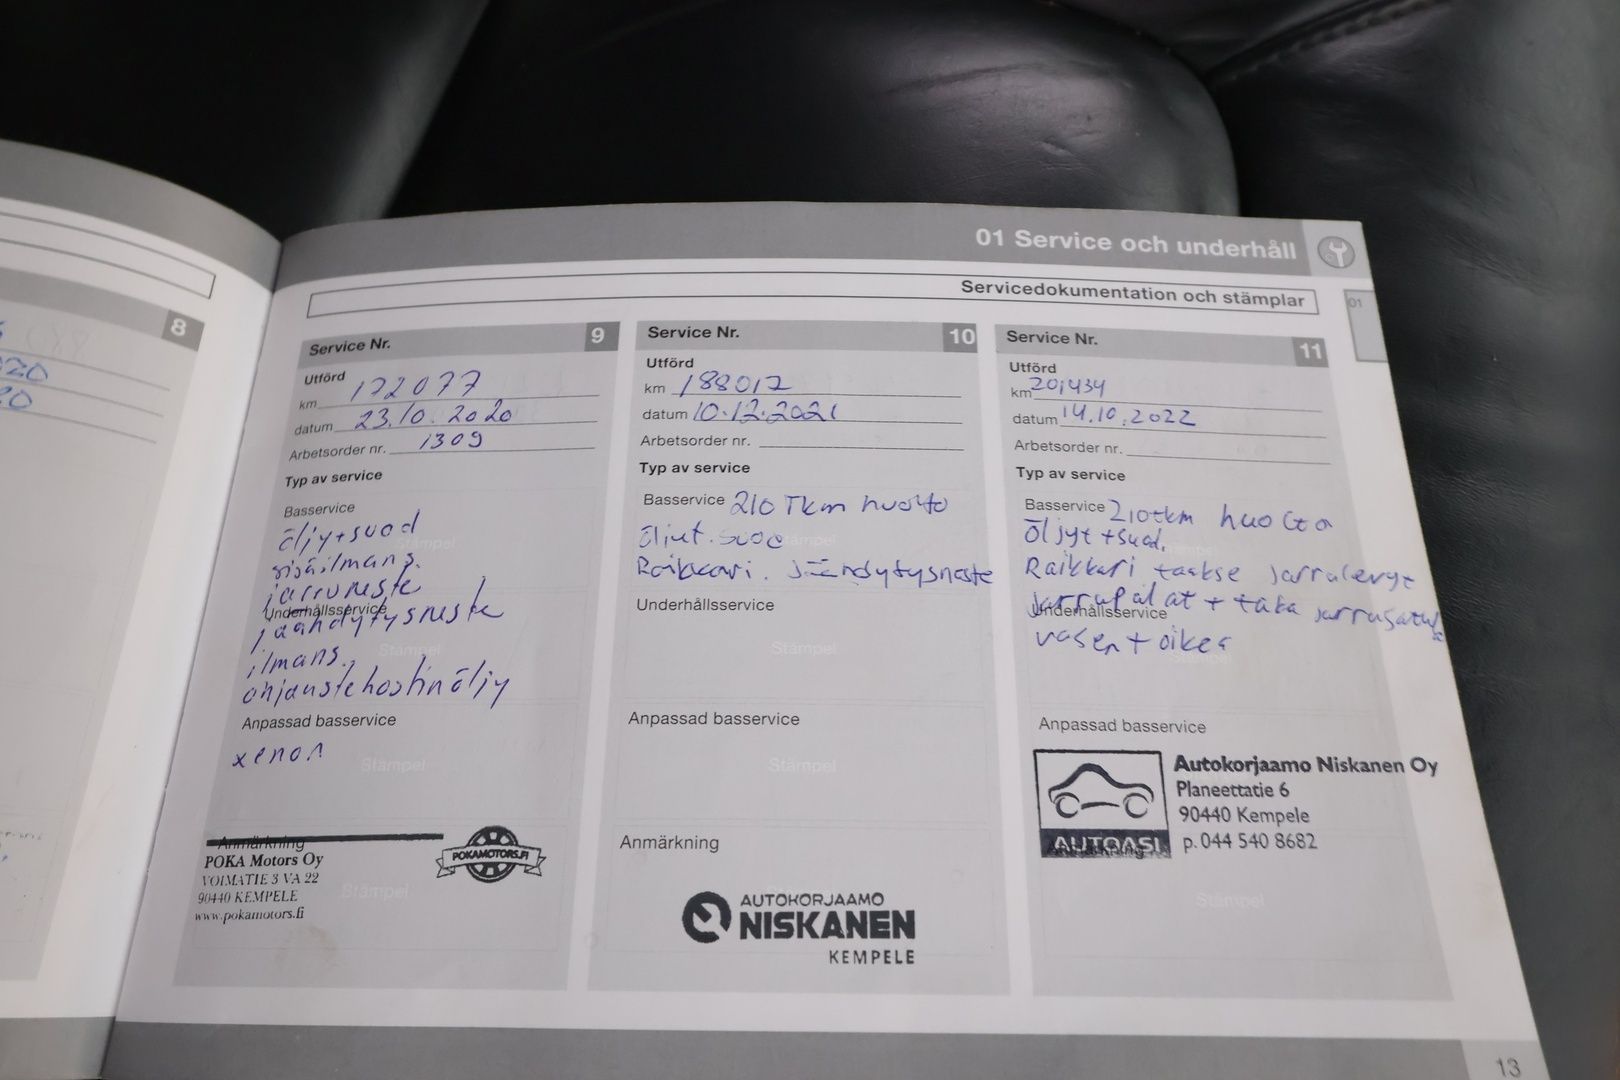 01 Service och underhåll
Servicedokumentation och stämplar
01
8
20
20
Service Nr. 9
Utförd
km 172077
datum 23.10.2020
Arbetsorder nr. 1309
Typ av service
Basservice
öljy+suod
Stämpel
sisäilmans.
jarruneste
Underhållsservice
jäähdytysneste
Stämpel
ilmans.
ohjaustehostinöljy
Anpassad basservice
xenon
Stämpel
Anmärkning
POKA Motors Oy
VOIMATIE 3 VA 22
90440 KEMPELE
www.pokamotors.fi
POKAMOTORS.FI
Stämpel
Service Nr. 10
Utförd
km 188012
datum 10.12.2021
Arbetsorder nr.
Typ av service
Basservice 210 Tkm huolto
Öljyt. suod
Stämpel
Raikkari. Jäähdytysneste
Underhållsservice
Stämpel
Anpassad basservice
Stämpel
Anmärkning
AUTOKORJAAMO
NISKANEN
KEMPELE
Service Nr. 11
Utförd
km 201434
datum 14.10.2022
Arbetsorder nr.
Typ av service
Basservice 210tkm huolto
Öljyt +suod.
Raikkari taakse jarrulevyt
Underhållsservice
jarrupalat + taka jarrusatula
vasen + oikea
Anpassad basservice
Autokorjaamo Niskanen Oy
Planeettatie 6
90440 Kempele
p. 044 540 8682
AUTOASI
Anmärkning
Stämpel
13